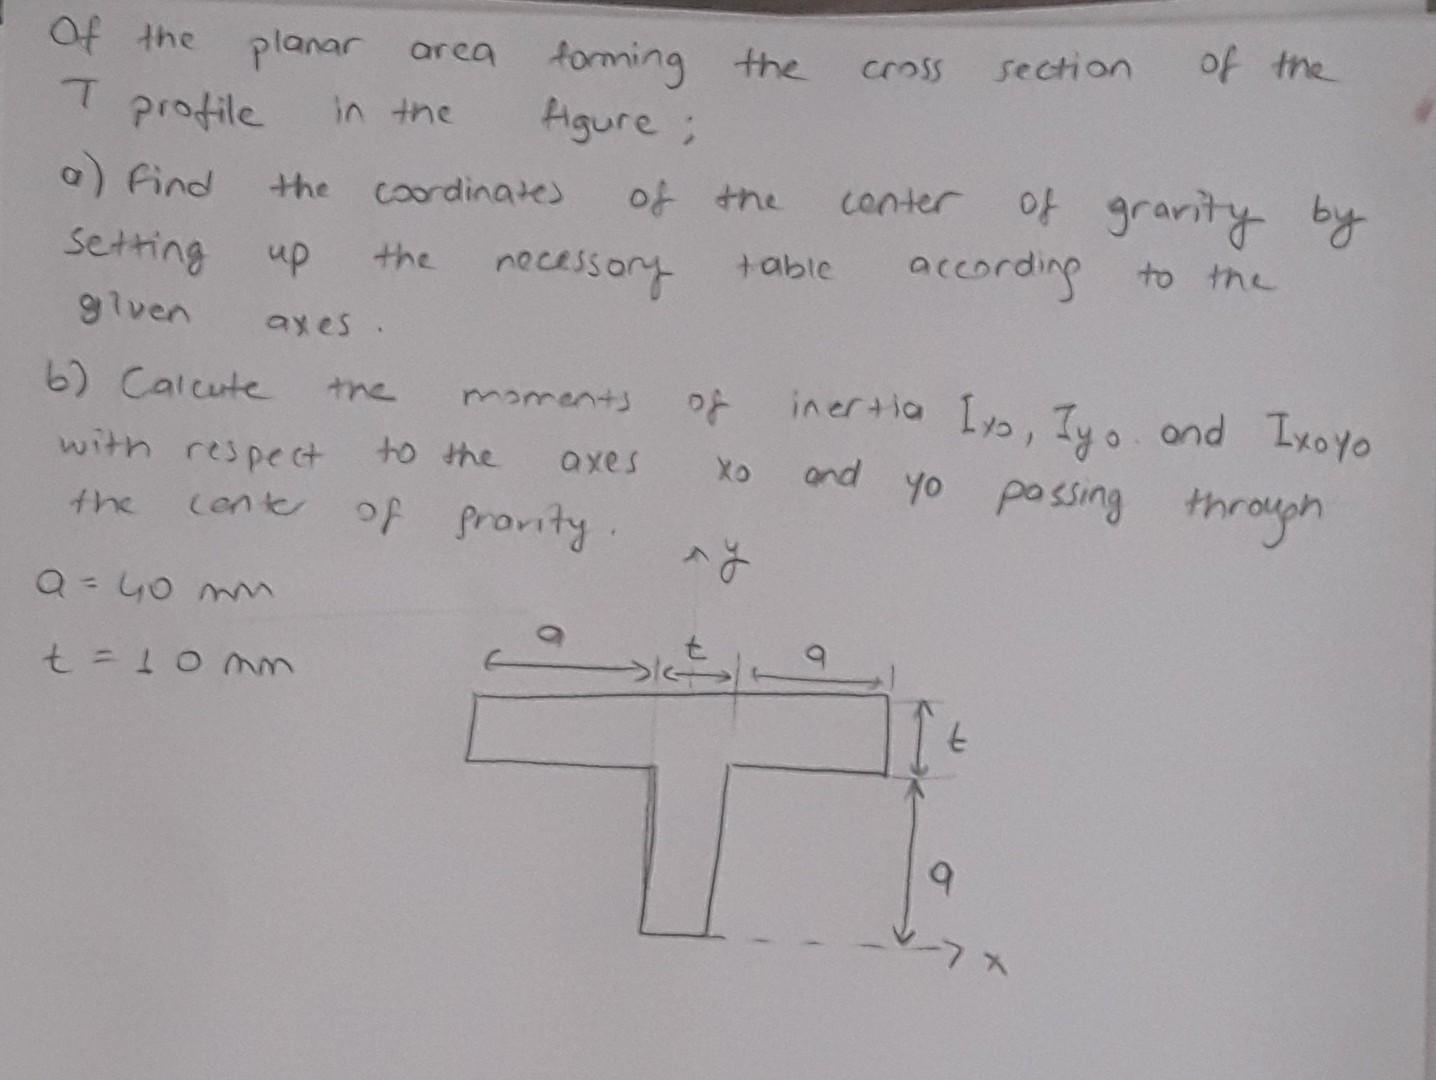 Of the planar area forming the cross section of the
T profile in the figure ;
a) Find the coordinates of the center of gravity by
setting up the necessary table according to the
given axes .
b) Calcute the moments of inertia Ixo, Iyo. and Ixoyo
with respect to the axes xo and yo passing through
the cente of gravity .
y
a = 40 mm
a t a
t = 10 mm
t
a
x